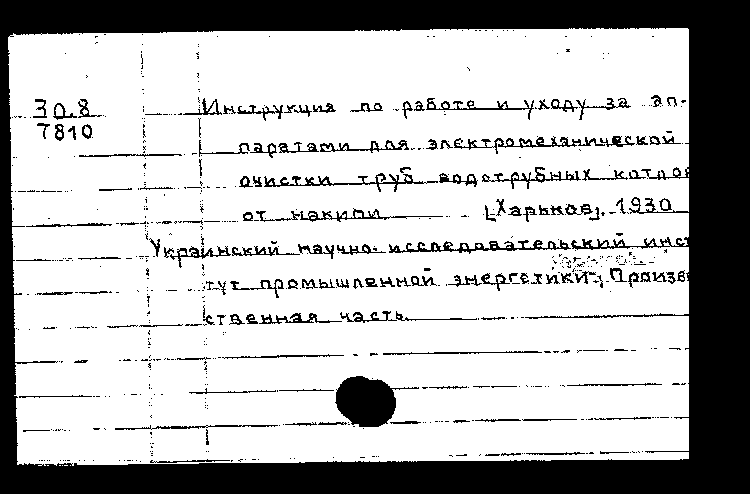 30.8
7810
Инструкция по работе и уходу за ап-
паратами для электромеханической
очистки труб водотрубных котлов
от накипи [Харьков], 1930
Украинский научно-исследовательский инст
тут промышленной энергетики, Произв
ственная часть.